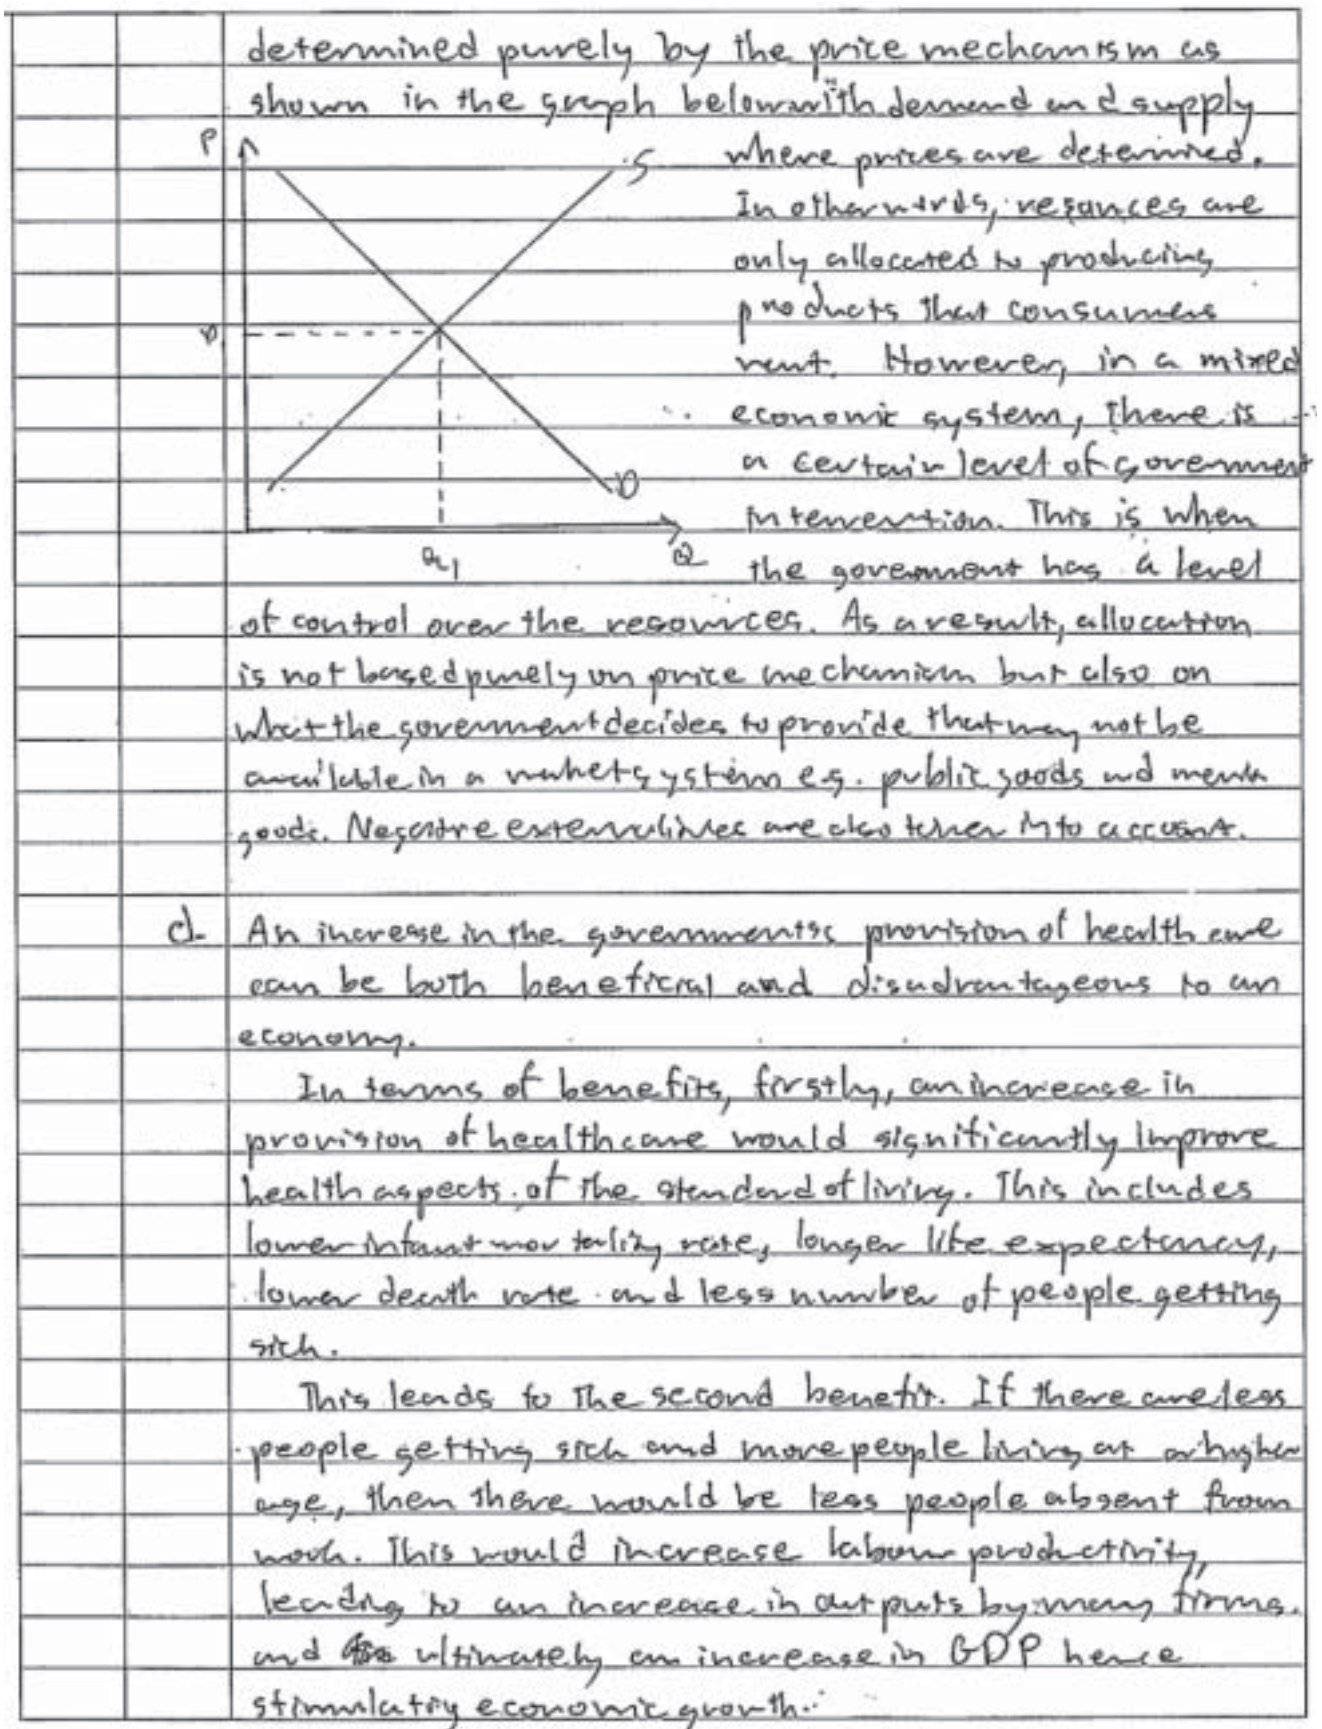 determined purely by the price mechanism as
shown in the graph below with demand and supply
P
S
where prices are determined.
In other words, resources are
only allocated to producing
products that consumers
want. However, in a mixed
economic system, there is
a certain level of government
D
intervention. This is when
Q1
Q
the government has a level
of control over the resources. As a result, allocation
is not based purely on price mechanism but also on
what the government decides to provide that may not be
available in a market system e.g. public goods and merit
goods. Negative externalities are also taken into account.
d. An increase in the governments provision of health care
can be both beneficial and disadvantageous to an
economy.
In terms of benefits, firstly, an increase in
provision of healthcare would significantly improve
health aspects of the standard of living. This includes
lower infant mortality rate, longer life expectancy,
lower death rate and less number of people getting
sick.
This leads to the second benefit. If there are less
people getting sick and more people living at a higher
age, then there would be less people absent from
work. This would increase labour productivity,
leading to an increase in outputs by many firms.
and ultimately an increase in GDP hence
stimulating economic growth.